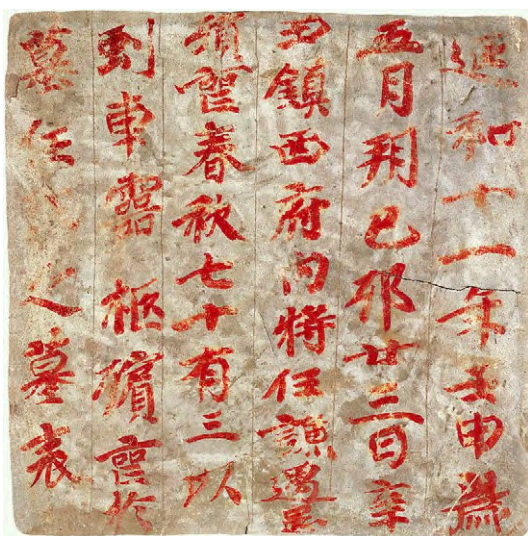 延和十一年壬申歲
五月朔己卯廿三日辛
丑鎮西府內將任謙遇患
殞喪春秋七十有三以
虯車靈柩殯喪於
墓任之墓表